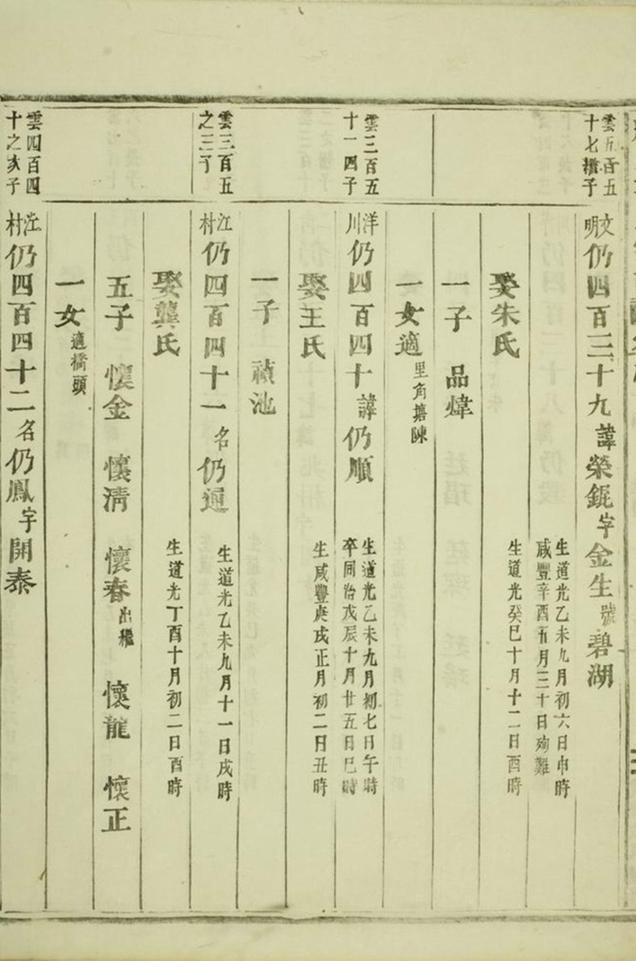 雲五百五
十七榰子
文明仍四百三十九諱榮錕字金生號碧湖
生道光乙未九月初六日申時
咸豐辛酉五月三十日殉難
娶朱氏
生道光癸巳十月十二日酉時
一子 品煒
一女適里角搪陳
雲三百五
十一四子
洋川仍四百四十諱仍順
生道光乙未九月初七日午時
卒同治戊辰十月廿五日巳時
娶王氏
生咸豐庚戌正月初二日丑時
一子 禎池
雲三百五
之三子
江村仍四百四十一名仍通
生道光乙未九月十一日戌時
娶龔氏
生道光丁酉十月初二日酉時
五子 懷金 懷清 懷春出繼 懷龍 懷正
一女適橋頭
雲四百四
十之亥子
江村仍四百四十二名仍鳳字開泰